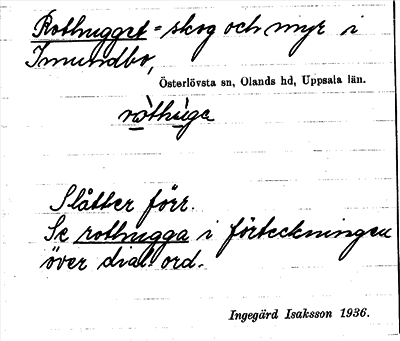 Rothugget = skog och myr i
Imundbo,
Österlövsta sn, Olands hd, Uppsala län.
ròthùge
Slåtter förr.
Se rothugga i förteckningen
över dial. ord.
Ingegärd Isaksson 1936.